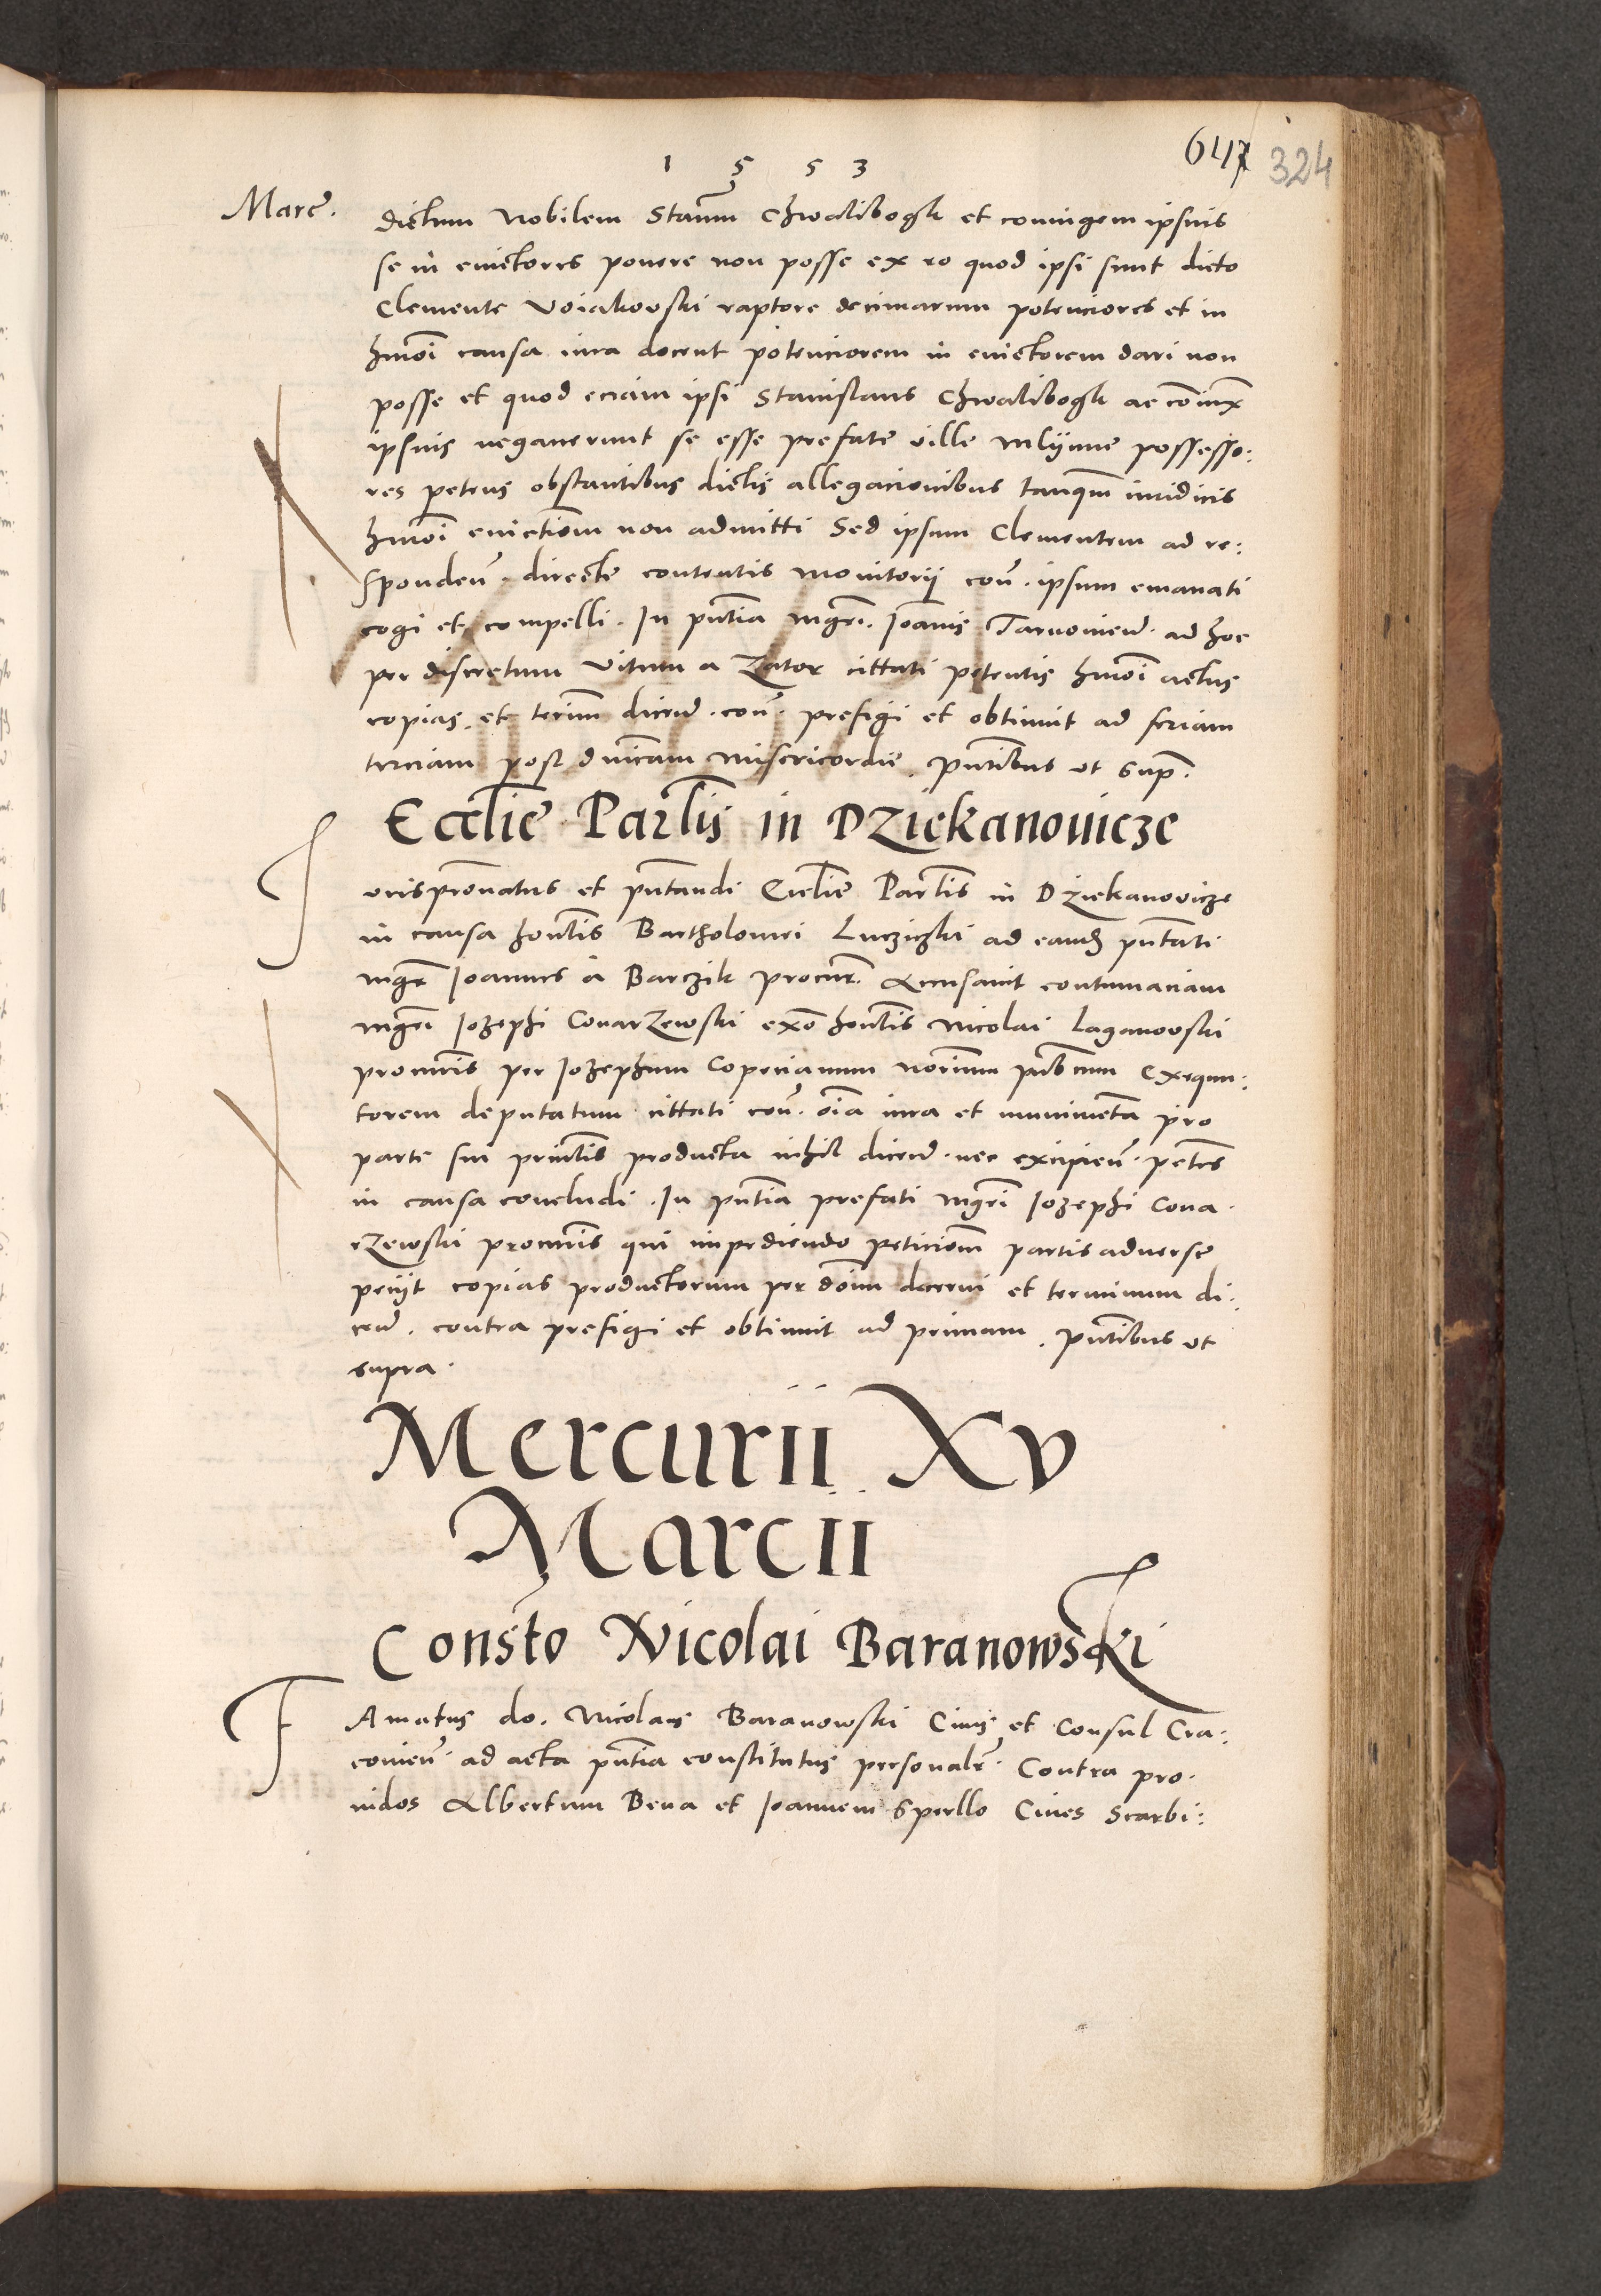 1 5 5 3
647 324
Marc̃.
dictum Nobilem Stanm̃ Chwalibogk et coniugem ipsius
se in euictores ponere non posse ex eo quod ipsi sunt dicto
Clemente Voiakovski raptore decimarum potenciores et in
hmōi causa iura docent potenciorem in euictorem dari non
posse et quod eciam ipsi Stanislaus Chwalibogk ac cōiux
ipsius negauerunt se esse prefate ville Mlÿnne possesso:
res petens obstantibus dictis allegacionibus tanqm̃ iuridicis
hmōi euictiom̃ non admitti Sed ipsum Clementem ad re:
sponden̄. directe contentis monitorij con̄. ipsum emanati
cogi et compelli. In pn̄tia mgr̄i. Joānis Tarnouien̄. ad hoc
per discretum Vitum a Zator cittati petentis hmōi actus
copias et termm̃ dicen̄. con̄. prefigi et obtinuit ad feriam
terciam post dnīcam Misericordie. Pn̄tibus ut sup̄.
Eccl̄ie Parl̄is in Dziekanouicze
Jurispronātus et pn̄tandi Eccl̄ie Parl̄is in Dziekanovicze
in causa honl̄is Bartholomei Lucziczki ad eand̄ pn̄tati
mgr̄ Joannes a Barczik procur̄. Accusauit contumaciam
mgr̄i Jozephi Conarzewski exō honl̄is Nicolai Laganovski
procuris̄ per Jozephum Copecianum norium̄ publicum Exequu:
torem deputatum cittati con̄. oīa iura et munimenta pro
parte sui prin̄lis producta nihil dicen̄. nec excipien̄. petens
in causa concludi. In pn̄tia prefati mgr̄i Jozephi Cona.
rzewski procuris̄ qui impediendo peticiom̃ partis aduerse
petijt copias productorum per dōm decerni et terminum di:
cen̄. contra prefigi et obtinuit ad primam. Pn̄tibus ut
supra.
Mercurii XV
Marcii
Consto̅ Nicolai Baranowski
FAmatus do. Nicolaus Baranowski Ciuis et Consul Cra:
couien̄. ad acta pn̄tia constitutus personalr̄. Contra pro.
uidos Albertum Bena et Joannem Sperllo Ciues Scarbi: